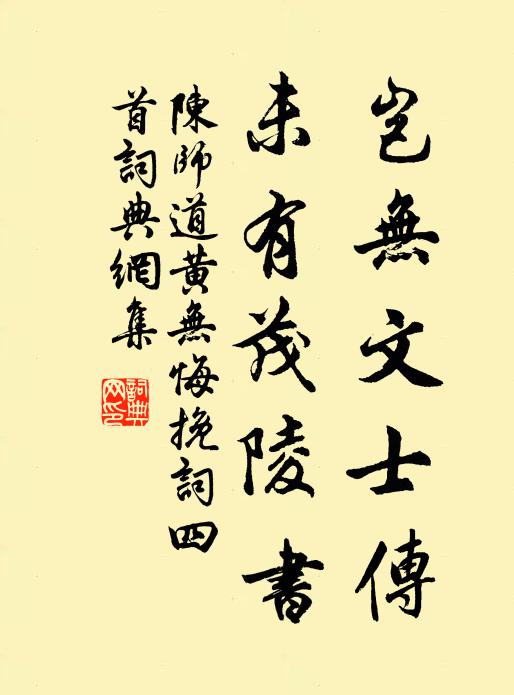 豈無文士傳
未有茂陵書
陳師道黃無悔挽詞四
首詞典網集
詞典
网印